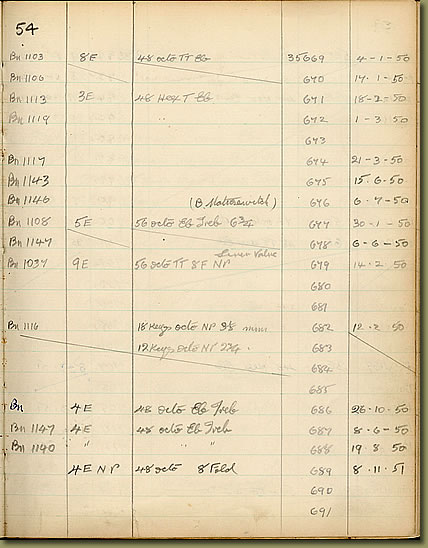 54
Bn 1103 8E 48 octo TT Eb 35669 4-1-50
Bn 1106 670 17-1-50
Bn 1113 3E 48 Hex T Eb 671 18-2-50
Bn 1119 " 672 1-3-50
673
Bn 1117 674 21-3-50
Bn 1143 675 15.6.50
Bn 1146 (B 676 6-7-50
Bn 1108 5E 56 octo Eb Treb 6¾ 677 30-1-50
Bn 1147 678 6-6-50
Lever Valve
Bn 1037 9E 56 octo TT 8F NP 679 14.2.50
680
681
Bn 1116 18 Keys octo NP 682 12.2.50
12 Keys octo NP 683
684
685
Bn 4E 48 octo Eb Treb 686 26.10.50
Bn 1147 4E 48 octo Eb Treb 687 8-6-50
Bn 1140 " " " 688 19.8.50
4E NP 48 octo 8 Fold 689 8.11.51
690
691